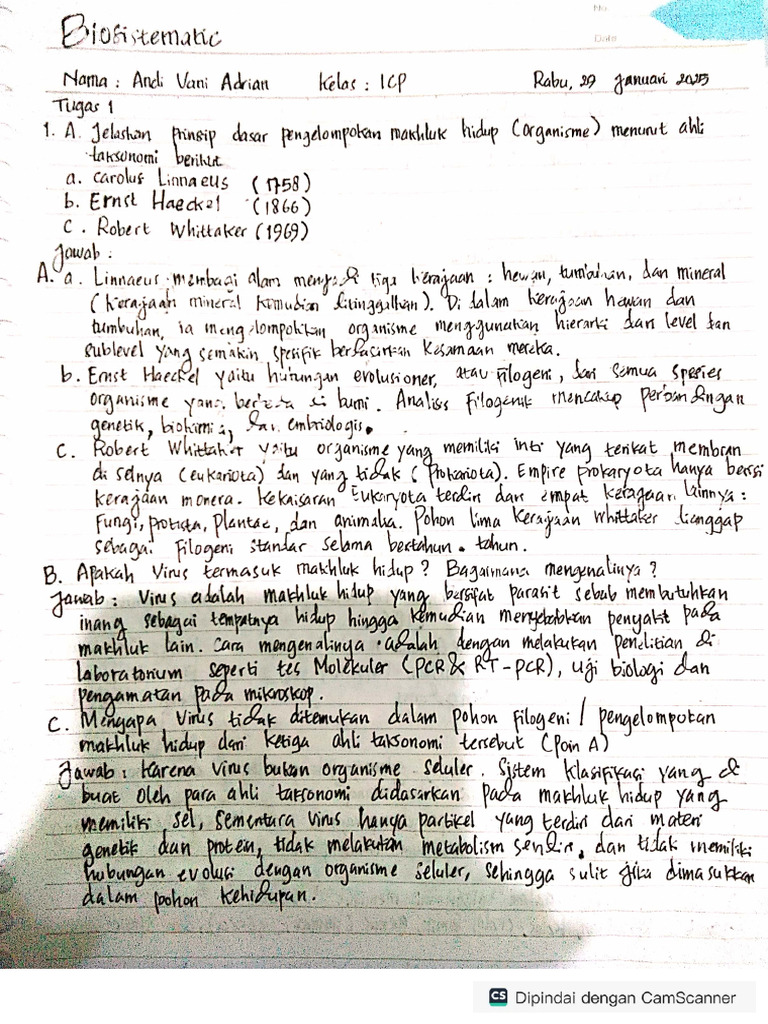 No
Date
Biosistematic
Nama : Andi Vani Adrian Kelas : ICP Rabu, 29 Januari 2025
Tugas 1
1. A. Jelaskan prinsip dasar pengelompokan makhluk hidup (organisme) menurut ahli
taksonomi berikut
a. Carolus Linnaeus (1758)
b. Ernst Haeckel (1866)
C. Robert Whittaker (1969)
Jawab :
A. a. Linnaeus membagi alam menjadi tiga kerajaan : hewan, tumbuhan, dan mineral
(kerajaan mineral kemudian ditinggalkan). Di dalam kerajaan hewan dan
tumbuhan, ia mengelompokkan organisme menggunakan hierarki dari level dan
sublevel yang semakin spesifik berdasarkan kesamaan mereka.
b. Ernst Haeckel yaitu hubungan evolusioner, atau filogeni, dari semua spesies
organisme yang berbeda di bumi. Analisis Filogenik mencakup perbandingan
genetik, biokimia, dan embriologis.
C. Robert Whittaker yaitu organisme yang memiliki inti yang terikat membran
di selnya (eukariota) dan yang tidak (Prokariota). Empire prokaryota hanya berisi
kerajaan monera. Kekaisaran Eukaryota terdiri dari empat kerajaan lainnya :
Fungi, protista, Plantae, dan animalia. Pohon lima kerajaan Whittaker dianggap
sebagai filogeni standar selama bertahun-tahun.
B. Apakah Virus termasuk makhluk hidup ? Bagaimana mengenalinya ?
Jawab : Virus adalah makhluk hidup yang bersifat parasit sebab membutuhkan
inang sebagai tempatnya hidup hingga kemudian menyebabkan penyakit pada
makhluk lain. Cara mengenalinya adalah dengan melakukan penelitian di
laboratorium seperti tes Molekuler (PCR & RT-PCR), uji biologi dan
pengamatan pada mikroskop.
C. Mengapa Virus tidak ditemukan dalam pohon filogeni / pengelompokan
makhluk hidup dari ketiga ahli taksonomi tersebut (Poin A)
Jawab : Karena virus bukan organisme seluler. Sistem klasifikasi yang di
buat oleh para ahli taksonomi didasarkan pada makhluk hidup yang
memiliki sel, sementara virus hanya partikel yang terdiri dari materi
genetik dan protein, tidak melakukan metabolism sendiri, dan tidak memiliki
hubungan evolusi dengan organisme seluler, sehingga sulit jika dimasukkan
dalam pohon kehidupan.
CS Dipindai dengan CamScanner